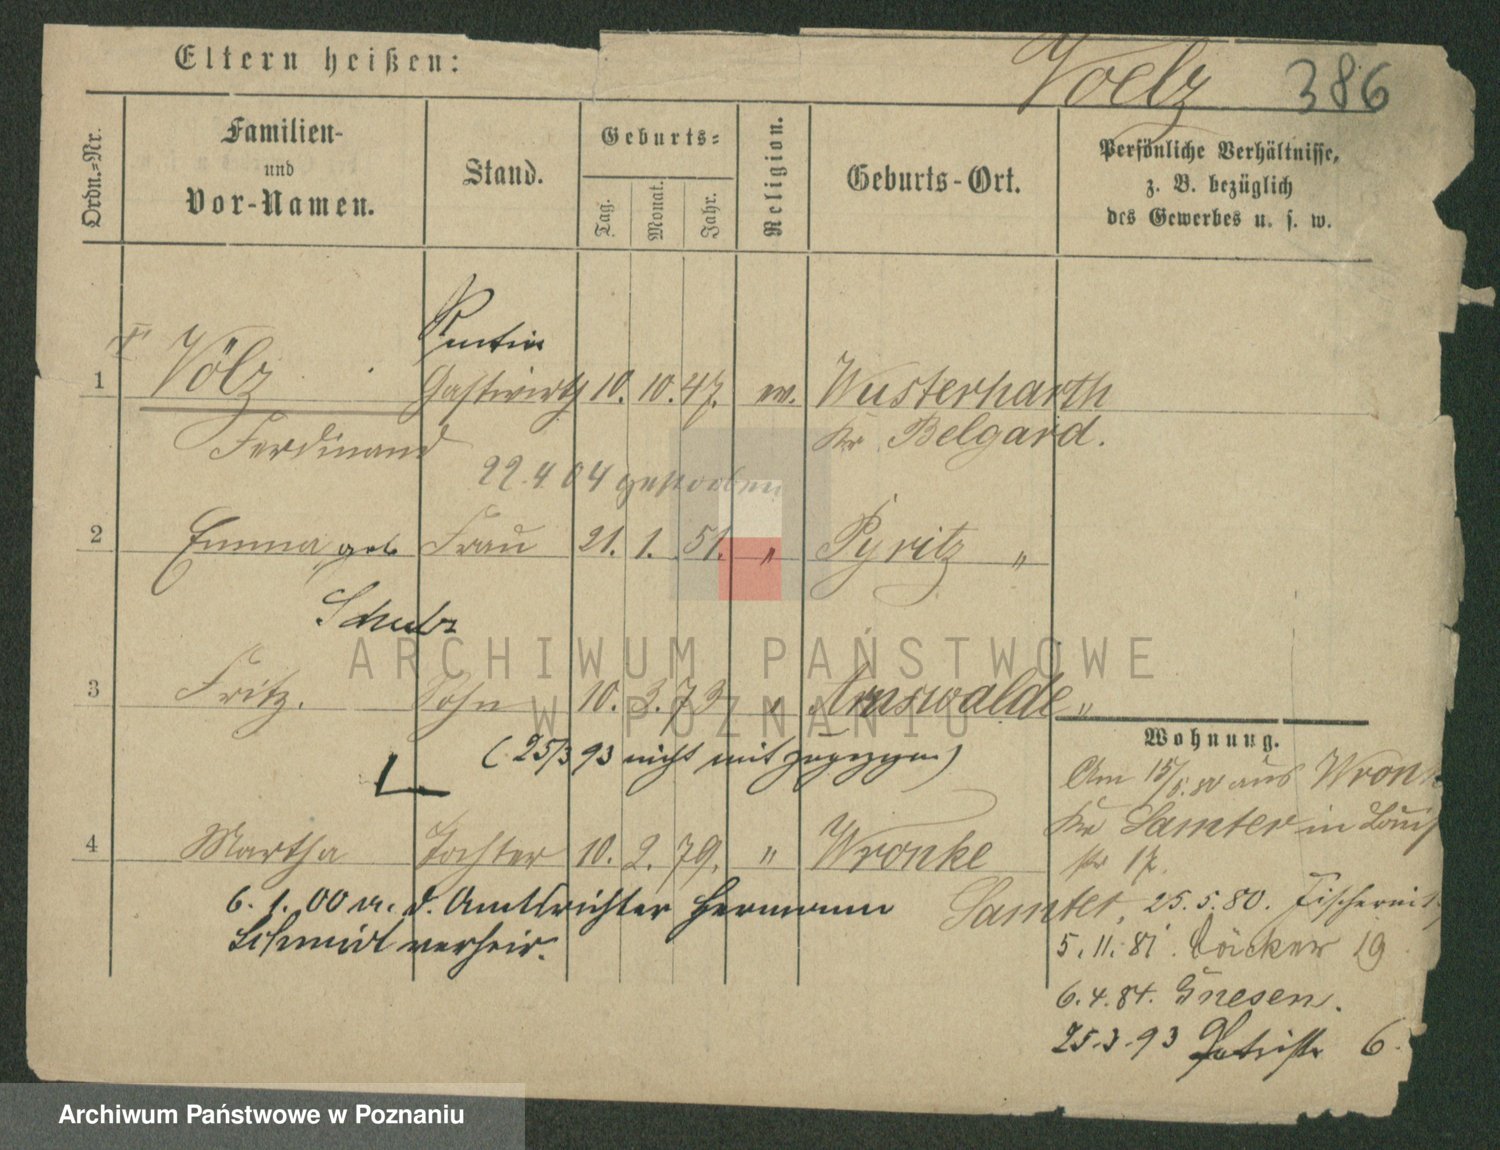 Eltern heißen:
Voelz 386
Ordn.=Nr.
Familien-
und
Vor-Namen.
Stand.
Geburts=
Tag.
Monat.
Jahr.
Religion.
Geburts-Ort.
Persönliche Verhältnisse,
z. B. bezüglich
des Gewerbes u. s. w.
Rentier
1 Völz Gastwirth 10. 10. 47. ev. Wusterharth
Ferdinand Kr. Belgard.
22.4.04 gestorben
2 Emma geb Frau 21. 1. 51. " Pyritz "
Schulz
3 Fritz. Sohn 10. 3. 73 " Arnswalde "
(25/3 93 nicht mit zugezogen)
4 Martha Tochter 10. 2. 79. " Wronke
6. 1. 00 m. d. Amtsrichter Hermann
Schmidt verheir.
Wohnung.
Am 15/5. 80 aus Wronk
Kr Samter in
str 17.
Samter, 25. 5. 80. Fischerei
5. 11. 81. Bäcker 19
6. 4. 84. Gnesen.
25.3.93 6.
ARCHIWUM PAŃSTWOWE
W POZNANIU
Archiwum Państwowe w Poznaniu